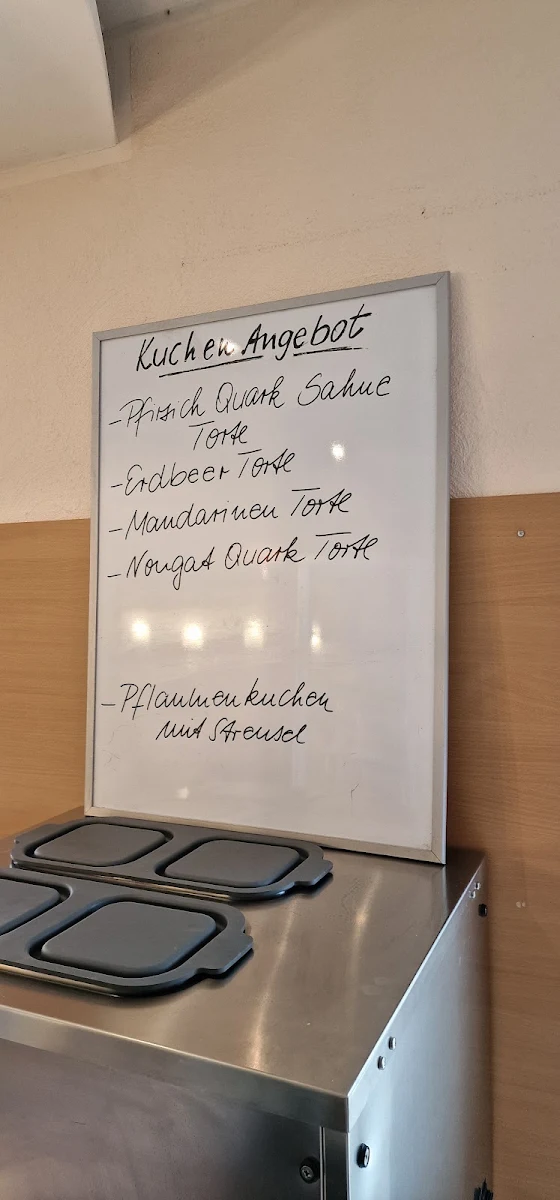 Kuchen Angebot
- Pfirsich Quark Sahne
Torte
- Erdbeer Torte
- Mandarinen Torte
- Nougat Quark Torte
- Pflaumenkuchen
mit Streusel